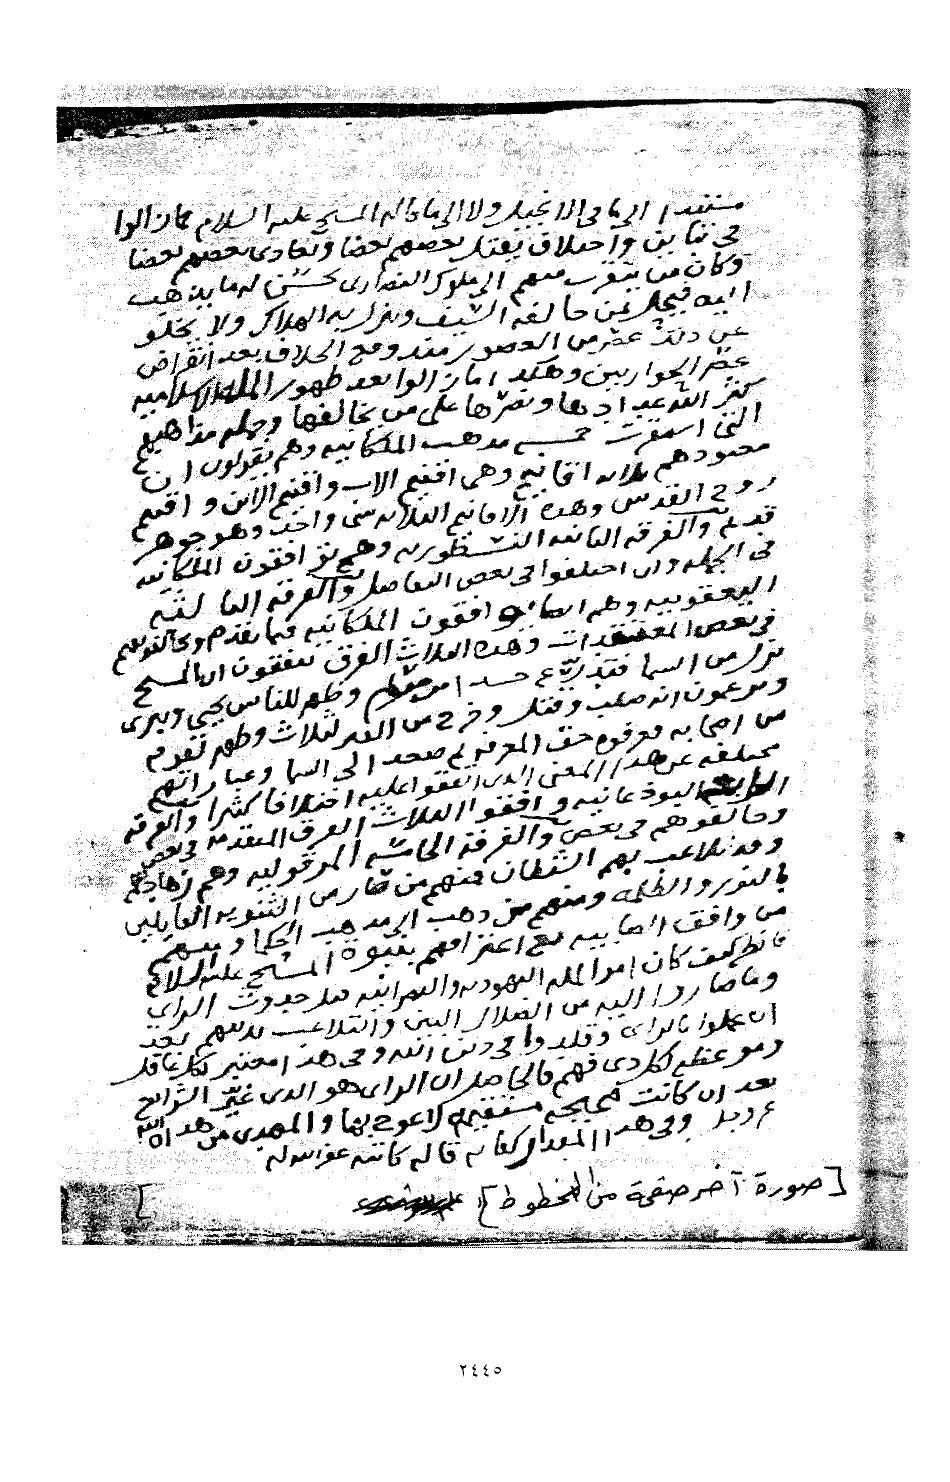 مستندا الى ما فى الانجيل ولا الى ما قاله المسيح عليه السلام فما زالوا
فى تباين واختلاف يقتل بعضهم بعضا ويعادى بعضهم بعضا
وكان من يتقرب منهم الى ملوك النصارى يحسّن له ما يذهب
اليه فيحمل من خالفه السّيف وينزل به الهلاك ولا يخلو
عن ذلك عصر من العصور منذ وقع الخلاف بعد انقراض
عصْر الحواريين وهكذا ما زالوا بعد ظهور الملة الاسلامية
كثّر الله عدادها ونصرها على من يخالفها وجملة مذاهبهم
التى استقرت خمسة مذهب الملكانية وهم يقولون ان
معبودهم ثلاثة اقانيم وهى اقنيم الاب واقنيم الابن واقنيم
روح القدس وهذه الاقانيم الثلاثة شى واحد وهو جوهر
قديم والفرقة الثانية النسطورية وهم يوافقون الملكانية
فى الجملة وان اختلفوا فى بعض التفاصيل والفرقة الثالثة
اليعقوبية وهم ايضا يوافقون الملكانية فيما تقدم ويخالفونهم
فى بعض المعتقدات وهذه الثلاث الفرق متفقون ان المسيح
نزل من السما فتدرّع جسدا من مريم وظهر للناس يحيى ويبرى
ويزعمون انه صلب وقتل وخرج من القبر لثلاث وظهر لقوم
من اصحابه فعرفوه حق المعرفة ثم صعد الى السما وعباراتهم
مختلفة عن هذا المعنى الذى اتفقوا عليه اختلافا كثيرا والفرقة
الرابعة اليوذعانية وافقوا الثلاث الفرق المتقدمة فى بعض
وخالفوهم فى بعض والفرقة الخامسة المرقولية وهم زهادهم
وقد تلاعب بهم الشيطان فمنهم من صار من الثنوية القايلين
بالنور والظلمة ومنهم من ذهب الى مذهب الحكما ومنهم
من وافق الصابية مع اعترافهم بنبوة المسيح عليه السلام
فانظر كيف كان امر الملة اليهودية والنصرانية قبل حدوث الراى
وما صاروا اليه من الضلال البين والتلاعب بدينهم بعد
ان عملوا بالراى وقلدوا فى دين الله وفى هذا معتبر لكل عاقل
وموعظة لكل ذى فهم فالحاصل ان الراى هو الذى غيّر الشرايع
بعد ان كانت صحيحة مستقيمة لا عوج بها والمهدى من هداه الله
عز وجل وفى هذا المقدار كفاية قاله كاتبه غفر الله له
[صورة آخر صفحة من المخطوط]
٢٤٤٥